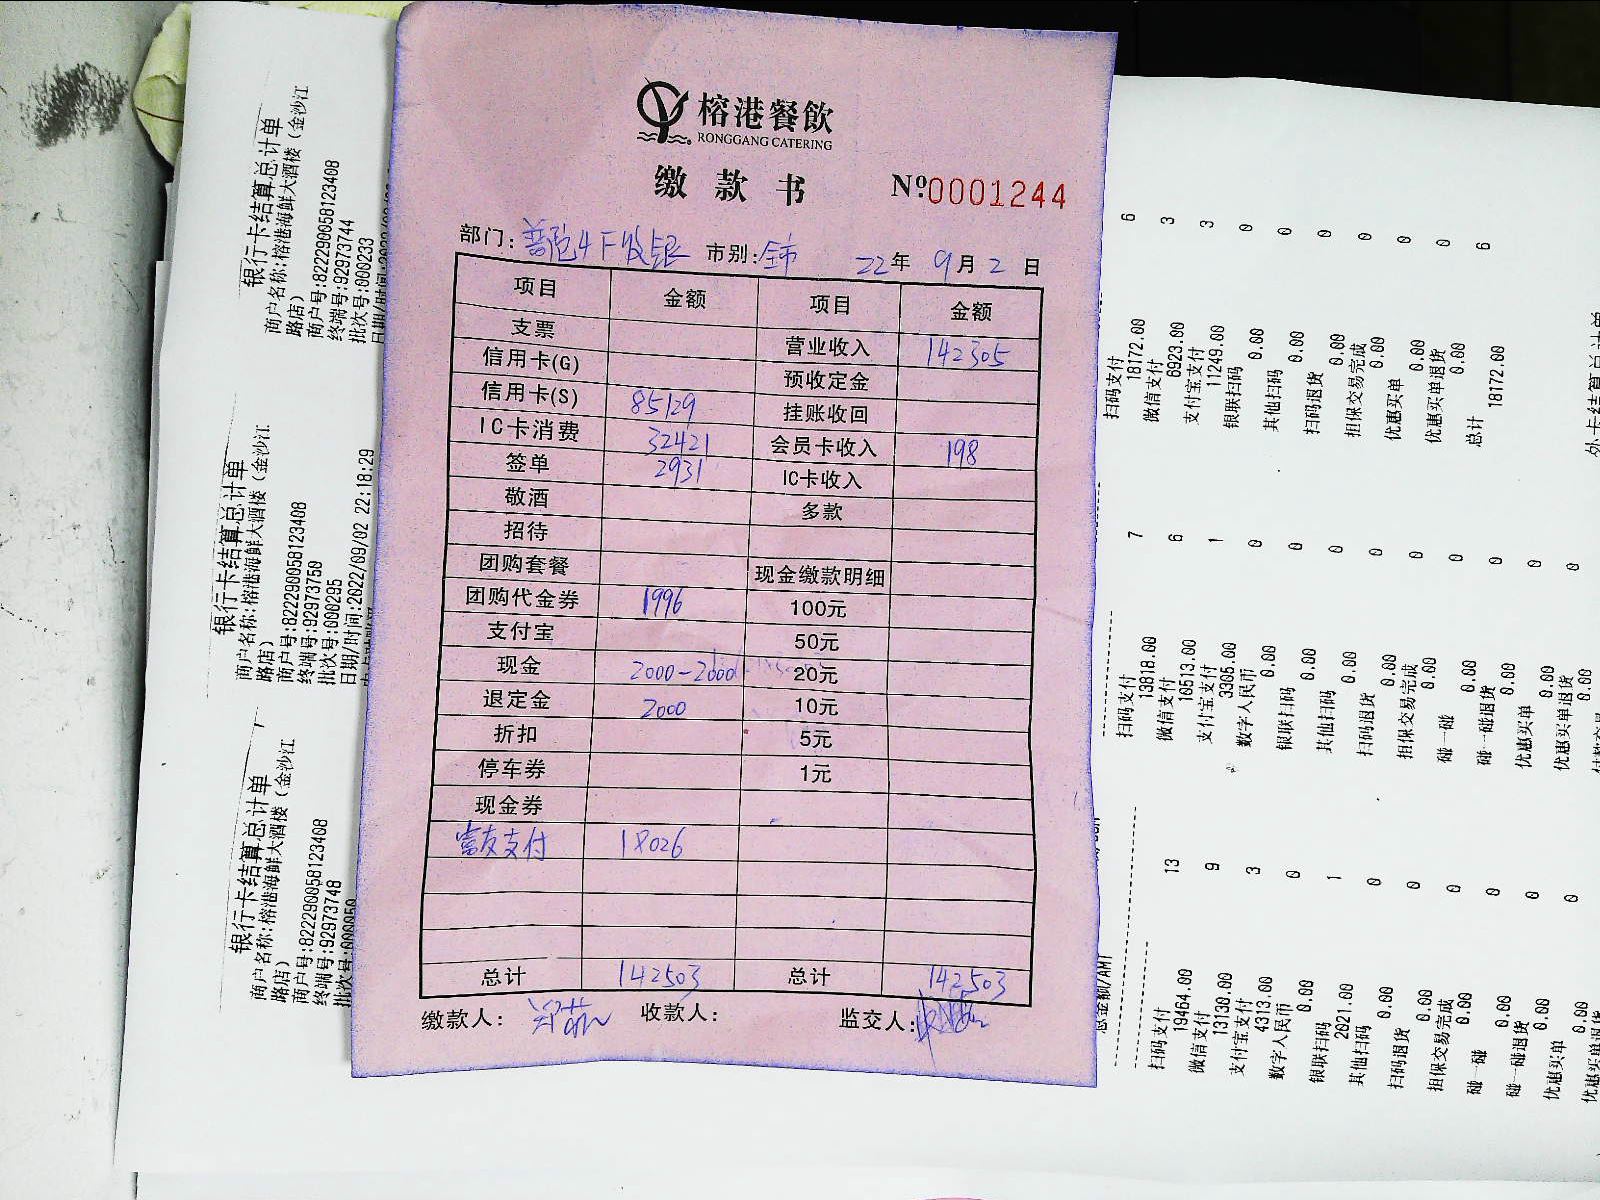 榕港餐飲
RONGGANG CATERING
缴款书 №0001244
部门: 市别: 全市 22年 9月 2日
项目 金额 项目 金额
支票 营业收入 142305
信用卡(G) 预收定金
信用卡(S) 85129 挂账收回
IC卡消费 32421 会员卡收入 198
签单 2931 IC卡收入
敬酒 多款
招待
团购套餐 现金缴款明细
团购代金券 1996 100元
支付宝 50元
现金 2000-2000 20元
退定金 2000 10元
折扣 5元
停车券 1元
现金券
富友支付 18026
总计 142503 总计 142503
缴款人: 收款人: 监交人:
银行卡结算总计单
商户名称:榕港海鲜大酒楼(金沙江
路店)
商户号:822290058123408
终端号:92973744
批次号:000233
银行卡结算总计单
商户名称:榕港海鲜大酒楼(金沙江
路店)
商户号:822290058123408
终端号:92973750
批次号:000295
日期/时间:2022/09/02 22:18:29
银行卡结算总计单
商户名称:榕港海鲜大酒楼(金沙江
路店)
商户号:822290058123408
终端号:92973748
批次号:000050
扫码支付 6
18172.00
微信支付 3
6923.00
支付宝支付 3
11249.00
银联扫码 0
0.00
其他扫码 0
0.00
扫码退货 0
0.00
担保交易完成 0
0.00
优惠买单 0
0.00
优惠买单退货 0
0.00
总计 6
18172.00
扫码支付 7
13818.00
微信支付 6
10513.00
支付宝支付 1
3305.00
数字人民币 0
0.00
银联扫码 0
0.00
其他扫码 0
0.00
扫码退货 0
0.00
担保交易完成 0
0.00
碰一碰 0
0.00
碰一碰退货 0
0.00
优惠买单 0
0.00
优惠买单退货 0
0.00
总金额/AMT
扫码支付 13
19464.00
微信支付 9
13130.00
支付宝支付 3
4313.00
数字人民币 0
0.00
银联扫码 1
2021.00
其他扫码 0
0.00
扫码退货 0
0.00
担保交易完成 0
0.00
碰一碰 0
0.00
碰一碰退货 0
0.00
优惠买单 0
0.00